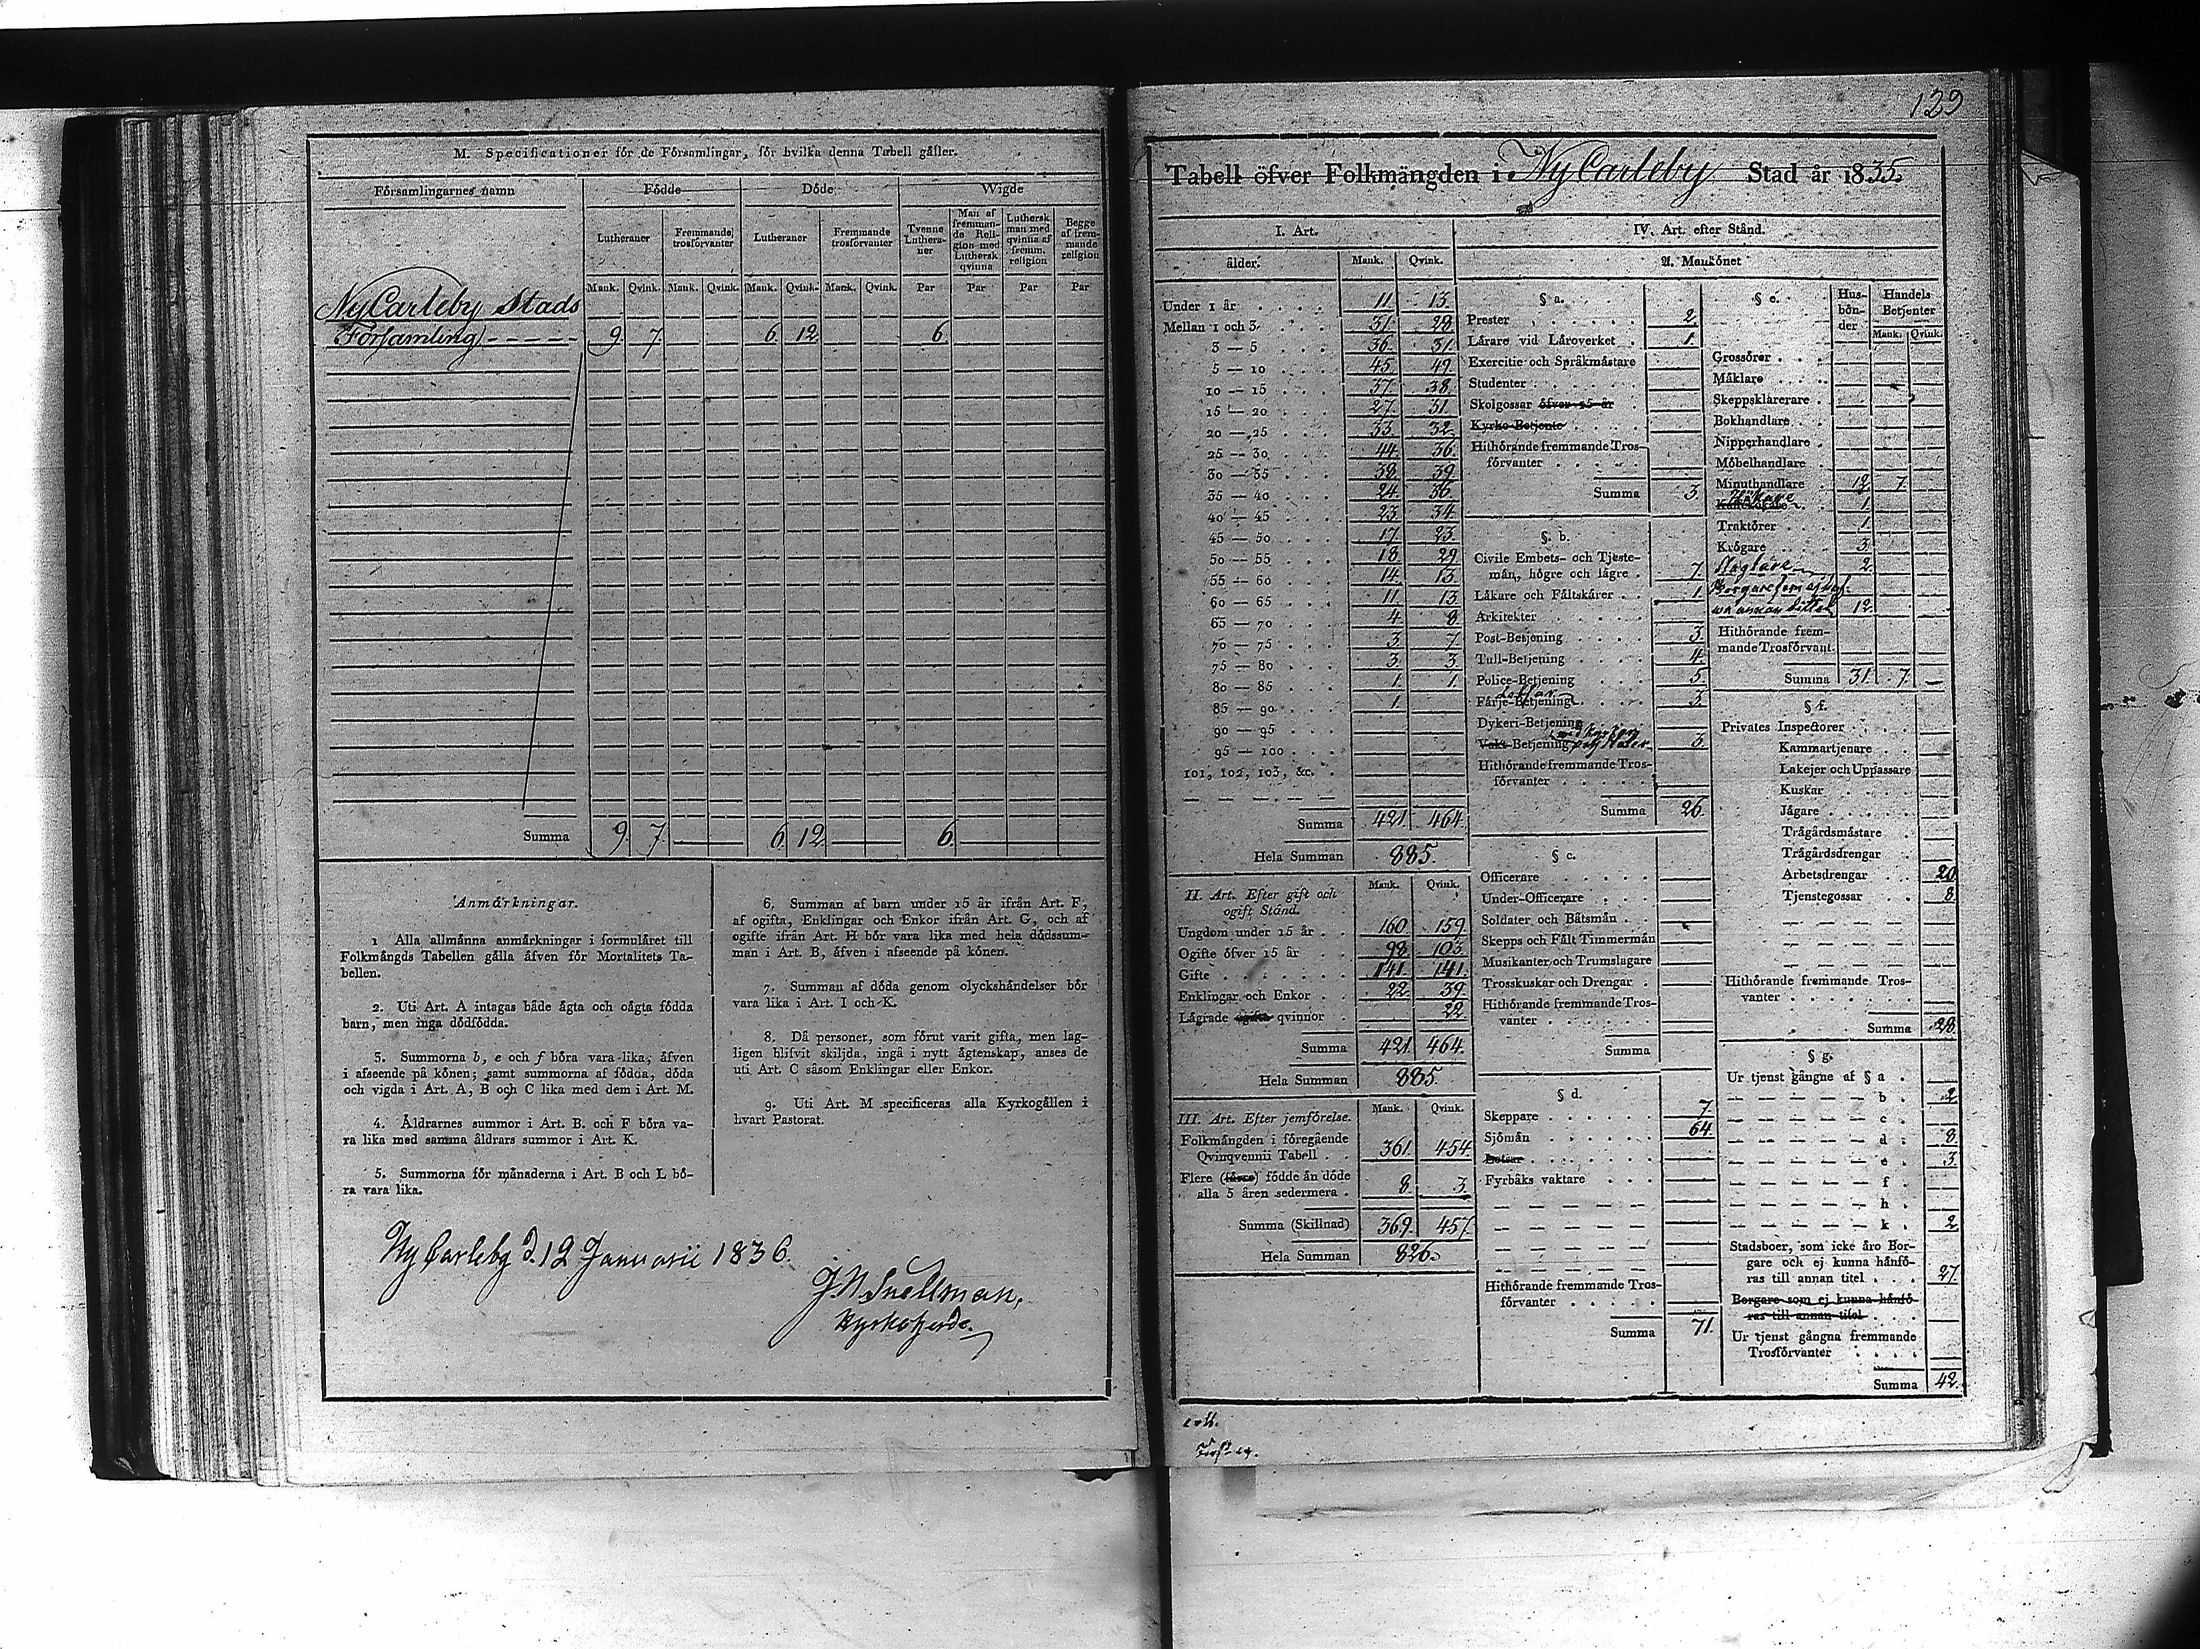 M. Specificationer för de Församlingar, för hvilka denna Tabell gäller.
Församlingarnes namn Födde Döde Wigde
Lutheraner Fremmande trosförvanter Lutheraner Fremmande trosförvanter Tvenne Lutheraner Man af fremmande Religion med Luthersk qvinna Luthersk man med qvinna af fremm. religion Begge af fremmande religion
Mank. Qvink. Mank. Qvink. Mank. Qvink. Mank. Qvink. Par Par Par Par
NyCarleby Stads
Församling 9. 7. 6. 12. 6.
Summa 9. 7. 6. 12. 6.
Anmärkningar.
1 Alla allmänna anmärkningar i formuläret till
Folkmängds Tabellen gälla äfven för Mortalitets Ta-
bellen.
2. Uti Art. A intagas både ägta och oägta födda
barn, men inga dödfödda.
3. Summorna b, e och f böra vara lika, äfven
i afseende på könen; samt summorna af födda, döda
och vigda i Art. A, B och C lika med dem i Art. M.
4. Åldrarnes summor i Art. B. och F böra va-
ra lika med samma åldrars summor i Art. K.
5. Summorna för månaderna i Art. B och L bö-
ra vara lika.
6. Summan af barn under 15 år ifrån Art. F,
af ogifta, Enklingar och Enkor ifrån Art. G, och af
ogifte ifrån Art. H bör vara lika med hela dödssum-
man i Art. B, äfven i afseende på könen.
7. Summan af döda genom olyckshändelser bör
vara lika i Art. I och K.
8. Då personer, som förut varit gifta, men lag-
ligen blifvit skiljda, ingå i nytt ägtenskap, anses de
uti Art. C såsom Enklingar eller Enkor.
9. Uti Art. M specificeras alla Kyrkogällen i
hvart Pastorat.
NyCarleby d. 12 Januarii 1836.
J. W. Snellman,
Kyrkoherde.
129
Tabell öfver Folkmängden i NyCarleby Stad år 1835.
I. Art.
ålder. Mank. Qvink.
Under 1 år 11. 13.
Mellan 1 och 3 31. 28.
3 — 5 36. 31.
5 — 10 45. 49.
10 — 15 37. 38.
15 — 20 27. 31.
20 — 25 33. 32.
25 — 30 44. 36.
30 — 35 38. 39.
35 — 40 24. 36.
40 — 45 23. 34.
45 — 50 17. 23.
50 — 55 18. 29.
55 — 60 14. 13.
60 — 65 11. 13.
65 — 70 4. 8.
70 — 75 3. 7.
75 — 80 3. 3.
80 — 85 1. 1.
85 — 90 1.
90 — 95
95 — 100
101, 102, 103, &c.
Summa 421. 464.
Hela Summan 885.
II. Art. Efter gift och
ogift Stånd. Mank. Qvink.
Ungdom under 15 år 160. 159.
Ogifte öfver 15 år 98. 103.
Gifte 141. 141.
Enklingar och Enkor 22. 39.
Lägrade ogifta qvinnor 22.
Summa 421. 464.
Hela Summan 885.
III. Art. Efter jemförelse. Mank. Qvink.
Folkmängden i föregående
Qvinqvennii Tabell 361. 454.
Flere (färre) födde än döde
alla 5 åren sedermera 8. 3.
Summa (Skillnad) 369. 457.
Hela Summan 826.
IV. Art. efter Stånd.
A. Mankönet
§ a.
Prester 2.
Lärare vid Läroverket 1.
Exercitie och Språkmästare
Studenter
Skolgossar öfver 15 år
Kyrko-Betjente
Hithörande fremmande Tros-
förvanter
Summa 3.
§. b.
Civile Embets- och Tjeste-
män, högre och lägre 7.
Läkare och Fältskärer 1.
Arkitekter
Post-Betjening 3.
Tull-Betjening 4.
Police-Betjening 5.
Lotsar
Färje-Betjening 3.
Dykeri-Betjening
Vakt-Betjening 3.
Hithörande fremmande Tros-
förvanter
Summa 26.
§ c.
Officerare
Under-Officerare
Soldater och Båtsmän
Skepps och Fält Timmermän
Musikanter och Trumslagare
Trosskuskar och Drengar
Hithörande fremmande Tros-
vanter
Summa
§ d.
Skeppare 7.
Sjömän 64.
Lotsar
Fyrbåks vaktare
Hithörande fremmande Tros-
förvanter
Summa 71.
§ e. Hus-bön-der Handels Betjenter
Mank. Qvink.
Grossörer
Mäklare
Skeppsklarerare
Bokhandlare
Nipperhandlare
Möbelhandlare
Minuthandlare 12. 7.
Hökare 1.
Traktörer 1.
Krögare 3.
2.
Borgare som ej haf-
wa annan tittel 12.
Hithörande frem-
mande Trosförvant.
Summa 31. 7. —
§ f.
Privates Inspectorer
Kammartjenare
Lakejer och Uppassare
Kuskar
Jägare
Trägårdsmästare
Trägårdsdrengar
Arbetsdrengar 20.
Tjenstegossar 8.
Hithörande fremmande Tros-
vanter
Summa 28.
§ g.
Ur tjenst gångne af § a
b. 2.
c.
d. 8.
e. 3.
f.
h.
k. 2.
Stadsboer, som icke äro Bor-
gare och ej kunna hänfö-
ras till annan titel 27.
Borgare som ej kunna hänfö-
ras till annan titel
Ur tjenst gångna fremmande
Trosförvanter
Summa 42.